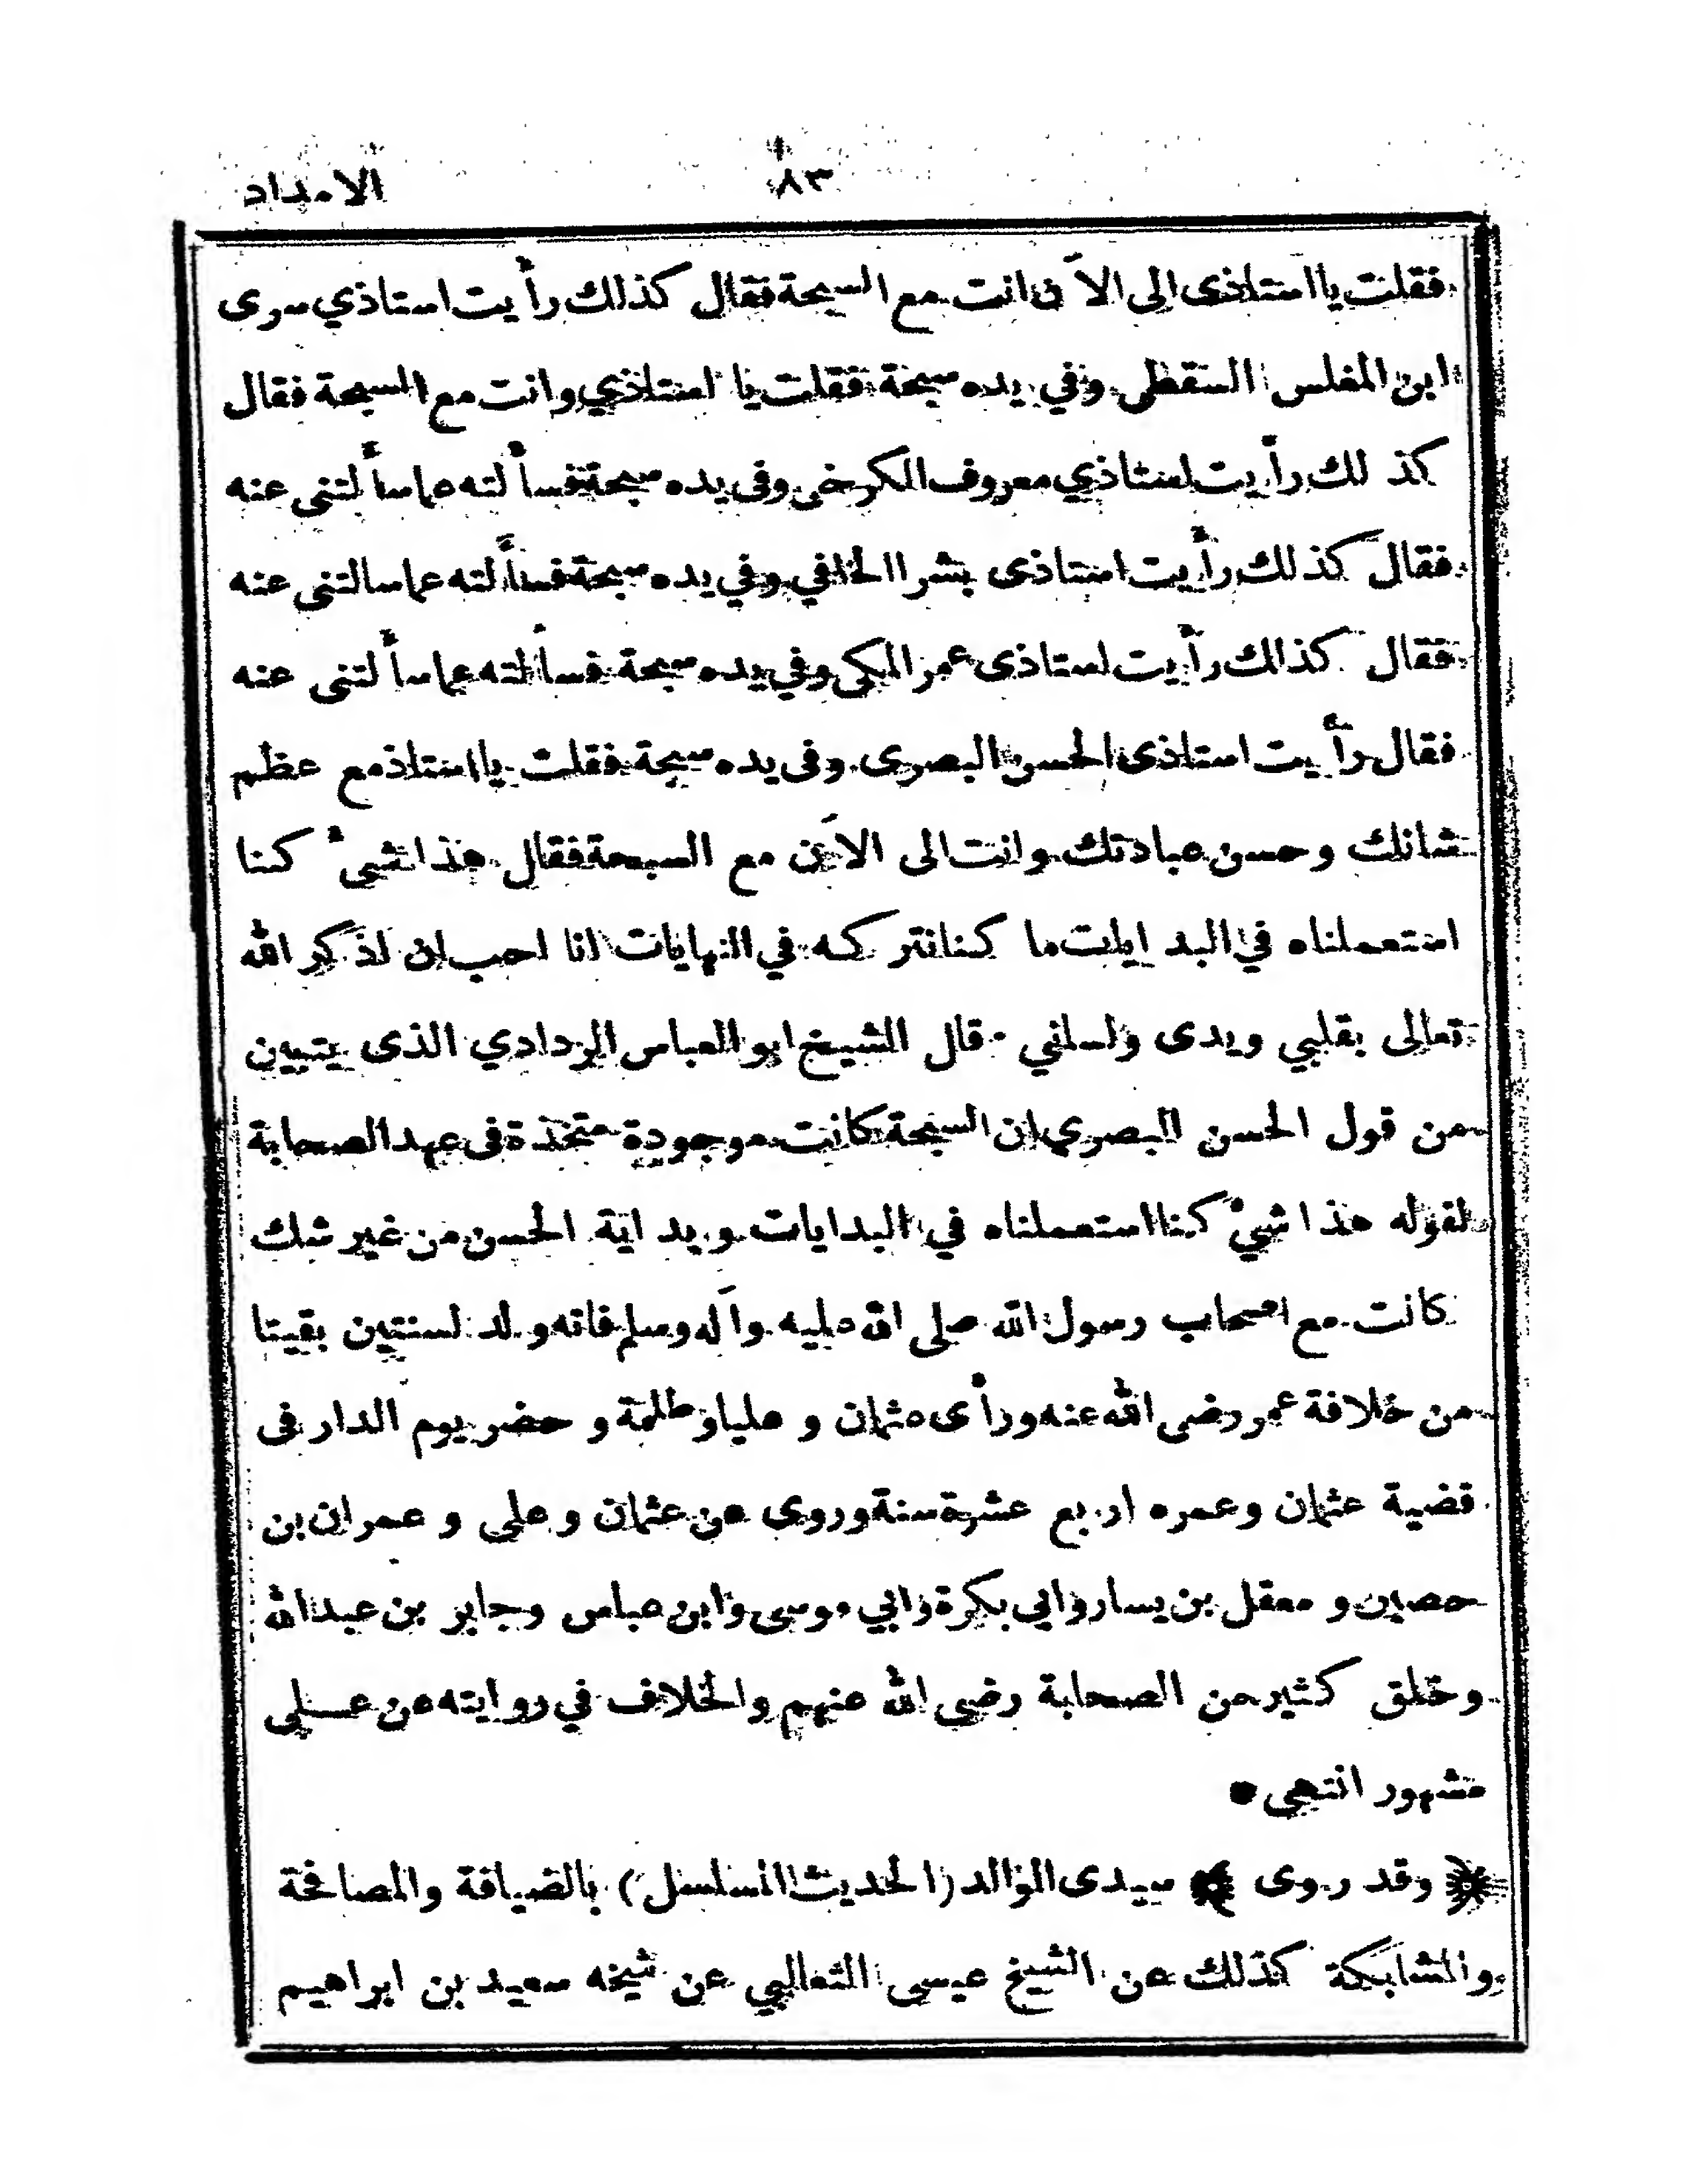 ٨٣ الامداد
فقلت يا استاذى الى الآن انت مع السبحة فقال كذلك رأيت استاذي سرى
ابن المغلس السقطى وفي يده سبحة فقلت يا استاذي وانت مع السبحة فقال
كذلك رأيت استاذي معروف الكرخى وفى يده سبحة فسألته عما سألتنى عنه
فقال كذلك رأيت استاذى بشرا الحافي وفي يده سبحة فسألته عما سالتنى عنه
فقال كذلك رأيت استاذى عمر المكى وفي يده سبحة فسألته عما سألتنى عنه
فقال رأيت استاذى الحسن البصرى وفى يده سبحة فقلت يا استاذ مع عظم
شانك وحسن عبادتك وانت الى الآن مع السبحة فقال هذا شىء كنا
استعملناه في البدايات ما كنا نتركه في النهايات انا احب ان اذكر الله
تعالى بقلبي ويدى ولساني قال الشيخ ابو العباس الردادي الذى يتبين
من قول الحسن البصري ان السبحة كانت موجودة متخذة فى عهد الصحابة
لقوله هذا شيء كنا استعملناه في البدايات وبداية الحسن من غير شك
كانت مع اصحاب رسول الله صلى الله عليه وآله وسلم فانه ولد لسنتين بقيتا
من خلافة عمر رضى الله عنه ورأى عثمان و عليا وطلحة و حضر يوم الدار فى
قضية عثمان وعمره اربع عشرة سنة وروى عن عثمان و على و عمران بن
حصين و معقل بن يسار وابي بكرة وابي موسى وابن عباس وجابر بن عبدالله
وخلق كثير من الصحابة رضى الله عنهم والخلاف في روايته عن عــلى
مشهور انتهى •
﴿ وقد روى ﴾ سيدى الوالد (الحديث المسلسل) بالضيافة والمصافحة
والمشابكة كذلك عن الشيخ عيسى الثعالبي عن شيخه سعيد بن ابراهيم